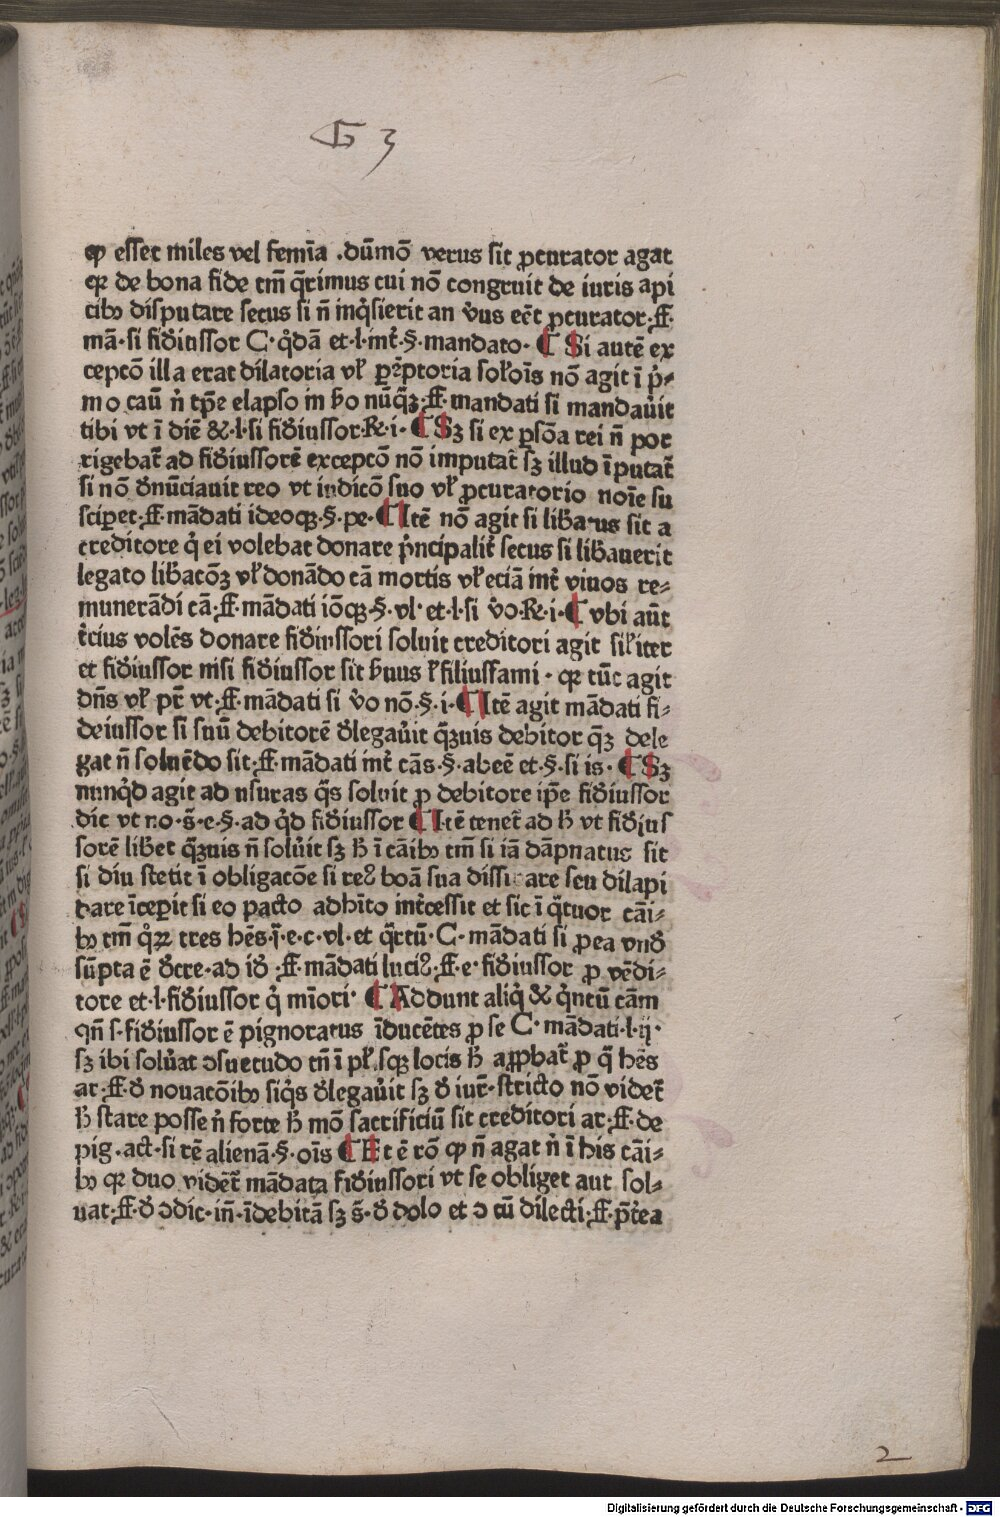 G 3
ꝙ esset miles vel femīa .dūmō verus sit ꝓcurator agat
qꝛ de bona fide tm̄ q̄rimus cui nō congruit de iuris api
cibꝰ disputare secus si n̄ inq̇sierit an v̓us eēt ꝓcurator·ff·
mā·si fid̓iussor C·q̇dā et·l·int̓·§·mandato· ¶ Si autē ex
ceptō illa erat dilatoria vꝉ ꝑēptoria soꝉoīs nō agit ī p̓⸗
mo caū n̓ tꝑe elapso in h̓o nūq̄ꝫ·ff·mandati si mandau̓it
tibi vt ī diē &·l·si fid̓iussor·R·i· ¶ Sꝫ si ex ꝑsōa rei n̄ por
rigebat᷑ ad fid̓iussorē exceptō nō imputat᷑ sꝫ illud īputat᷑
si nō d̓nūciauit reo vt iudicō suo vꝉ ꝓcuratorio noīe su
sciꝑet·ff·mādati ideoqꝫ·§·pe· ¶ Itē nō agit si lib̓atus sit a
creditore q̓ ei volebat donare p̓ncipalit̓ secus si lib̓auerit
legato lib̓atōꝫ vꝉ donādo cā mortis vꝉ eciā int̓ viuos re⸗
munerādi cā·ff·mādati iōqꝫ·§·vl·et·l·si v̓o·R·i· ¶ vbi aūt
t̓cius volēs donare fid̓iussori soluit creditori agit siꝉiter
et fid̓iussor nisi fid̓iussor sit s̓uus ꝉ filiusfami· qꝛ tūc agit
dn̄s vꝉ pr̄ vt·ff·mādati si v̓o nō·§·i· ¶ Itē agit mādati fi⸗
deiussor si suū debitorē d̓legau̓it q̄ꝫuis debitor q̄ꝫ dele
gat n̄ soluēdo sit·ff·mādati int̓ cās·§·abeē et·§·si is· ¶ Sꝫ
nunq̇d agit ad usuras q̄s soluit ꝓ debitore ip̄e fid̓iussor
dic vt no·s̄·e·§·ad q̇d fid̓iussor ¶ Itē tenet᷑ ad h̓ vt fid̓ius
sorē libet q̄ꝫuis n̄ solu̓it sꝫ h̓ ī cāibꝰ tm̄ si iā dāpnatus sit
si diu stetit ī obligacōe si reꝰ boā sua dissipare seu dilapi
dare īceꝑit si eo pacto adhīto int̓cessit et sic ī q̄tuor cāi⸗
bꝰ tm̄ q̓ꝝ tres hēs·ī·e·c·vl·et q̄rtū·C·mādati si ꝓ ea vnd̓
sūpta ē d̓cre·ad id̓ ·ff·mādati luciꝰ·ff·e·fid̓iussor ꝓ vēdi⸗
tore et·l·fid̓iussor q̓ mīori· ¶ Addunt aliq̓ & q̓ntū cām
qn̄ s·fid̓iussor ē pignoratus īducētes ꝓ se C·mādati·l·ij·
sꝫ ibi solu̓at ↄsuetudo tn̄ ī pꝉ̓sqꝫ locis h̓ aꝓbat᷑ ꝓ q̄ hēs
ar·ff·d̓ nouacōibꝰ siq̓s d̓legau̓it sꝫ d̓ iur̄·stricto nō videt᷑
h̓ stare posse n̓ forte h̓ mō sacrificiū sit creditori ar·ff·de
pig·act·si rē alienā·§·oīs ¶ Et ē rō ꝙ n̄ agat n̓ ī his cāi⸗
bꝰ qꝛ duo vident᷑ mādata fid̓iussori vt se obliget aut sol⸗
uat·ff·d̓ ↄdic·in̄·īdebitā sꝫ s̄·d̓ dolo et ↄ cū dilecti·ff·p̄t̓ea
2
Digitalisierung gefördert durch die Deutsche Forschungsgemeinschaft - DFG